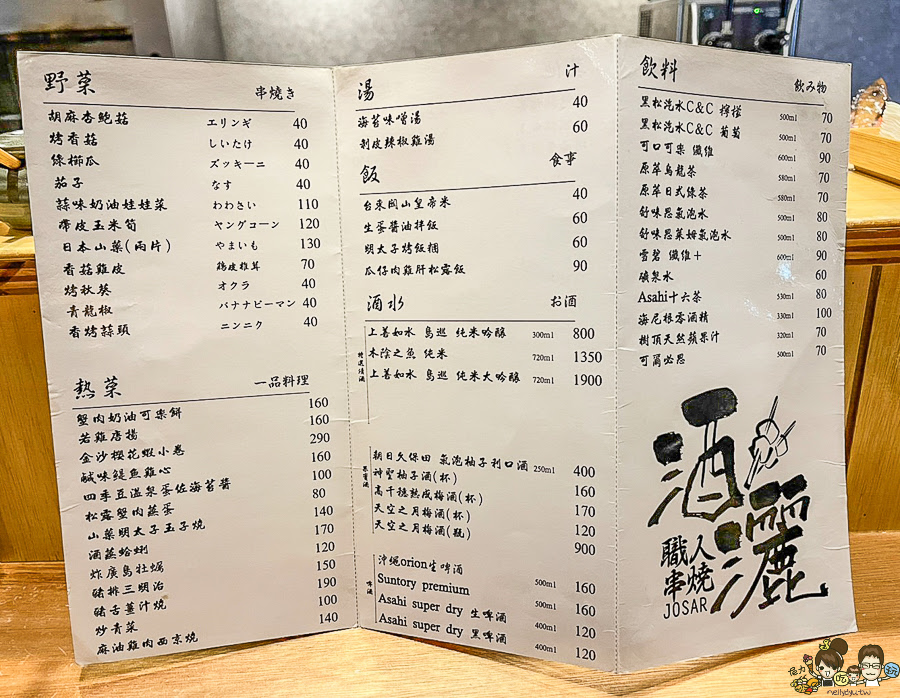 野菜 串燒き
胡麻杏鮑菇 エリンギ 40
烤香菇 しいたけ 40
綠櫛瓜 ズッキーニ 40
茄子 なす 40
蒜味奶油娃娃菜 わわさい 110
帶皮玉米筍 ヤングコーン 120
日本山藥(兩片) やまいも 130
香菇雞皮 鶏皮椎茸 70
烤秋葵 オクラ 40
青龍椒 バナナピーマン 40
香烤蒜頭 ニンニク 40
熱菜 一品料理
蟹肉奶油可樂餅 160
若雞唐揚 160
金沙櫻花蝦小卷 290
鹹味鯷魚雞心 160
四季豆溫泉蛋佐海苔醬 100
松露蟹肉蒸蛋 80
山藥明太子玉子燒 140
酒蒸蛤蜊 170
炸廣島牡蠣 120
豬排三明治 150
豬舌薑汁燒 190
炒青菜 100
麻油雞肉西京燒 140
湯 汁
海苔味噌湯 40
剝皮辣椒雞湯 60
飯 食事
台東關山皇帝米 40
生蛋醬油拌飯 60
明太子烤飯糰 60
瓜仔肉雞肝松露飯 90
酒水 お酒
特選清酒
上善如水 鳥巡 純米吟釀 300ml 800
木陰之魚 純米 720ml 1350
上善如水 鳥巡 純米大吟釀 720ml 1900
果實酒
朝日久保田 氣泡柚子利口酒 250ml 400
神聖柚子酒(杯) 160
高千穗熟成梅酒(杯) 170
天空之月梅酒(杯) 120
天空之月梅酒(瓶) 900
啤酒
沖繩orion生啤酒 500ml 160
Suntory premium 500ml 160
Asahi super dry 生啤酒 400ml 120
Asahi super dry 黑啤酒 400ml 120
飲料 飲み物
黑松汽水C&C 檸檬 500ml 70
黑松汽水C&C 葡萄 500ml 70
可口可樂 纖維 600ml 90
原萃烏龍茶 580ml 70
原萃日式綠茶 580ml 70
舒味思氣泡水 500ml 80
舒味思萊姆氣泡水 500ml 80
雪碧 纖維+ 600ml 90
礦泉水 60
Asahi十六茶 530ml 80
海尼根零酒精 330ml 100
樹頂天然蘋果汁 320ml 70
可爾必思 500ml 70
酒灑
職人
串燒
JOSAR
nellydyu.tw